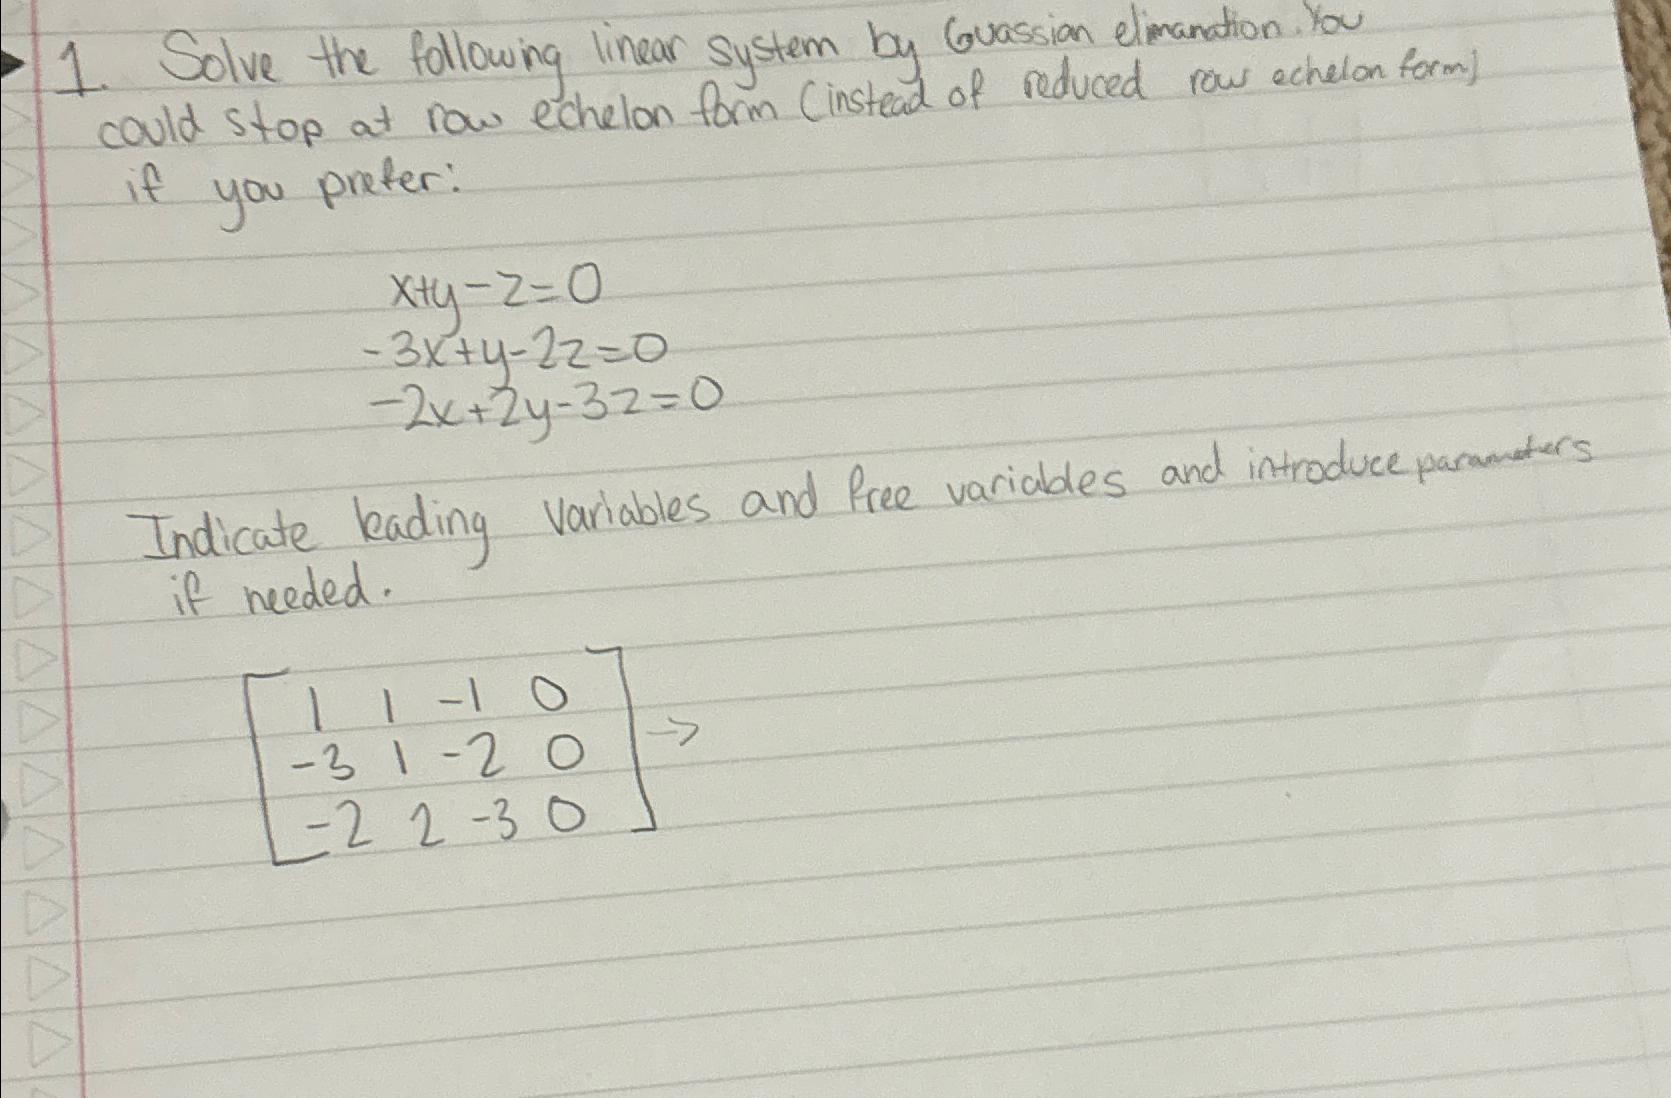 1. Solve the following linear system by Guassian elimanation. You
could stop at row echelon form (instead of reduced row echelon form)
if you prefer:
x+y-z=0
-3x+y-2z=0
-2x+2y-3z=0
Indicate leading variables and free variables and introduce parameters
if needed.
1 1 -1 0
-3 1 -2 0 ->
-2 2 -3 0